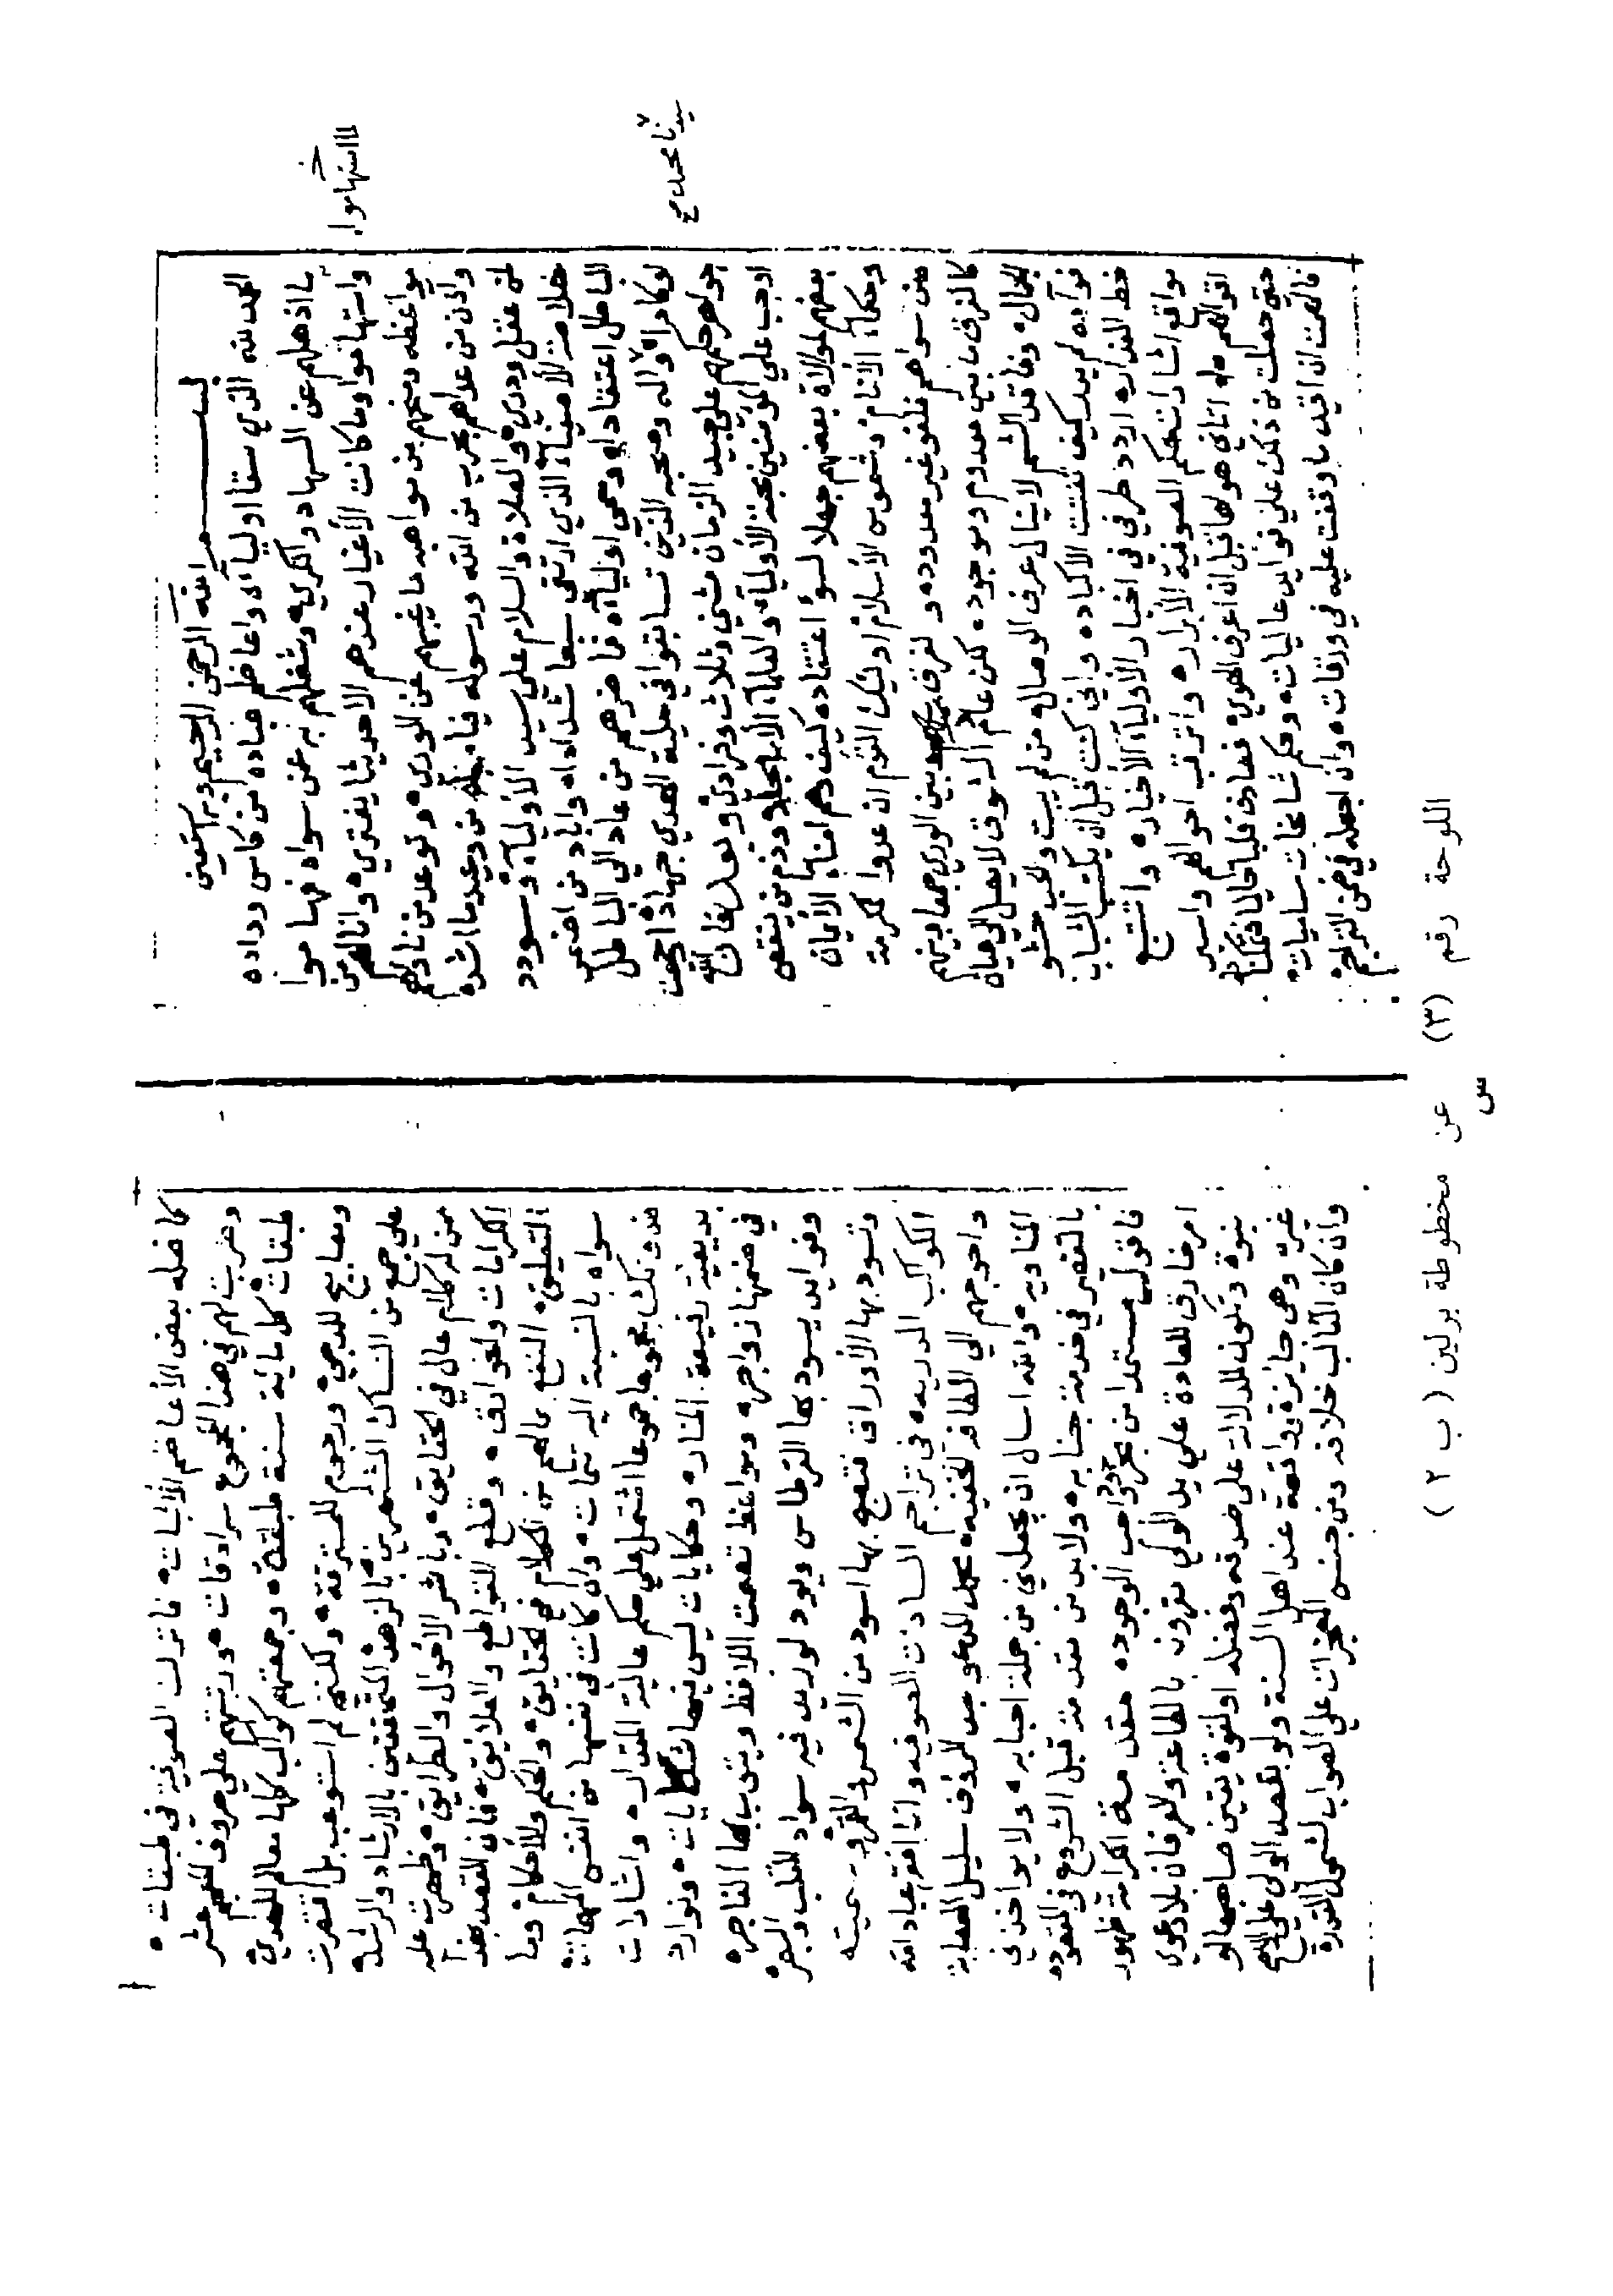 بسم الله الرحمن الرحيم وبه استعين
الحمد لله الذي سقا اوليآءه واعاظم عباده من كاس وداده
ما اذهلهم عن السهاد والكرى وشغلهم به عن سواه فهاموا
واستهاموا وما كانت الأغيار عندهم الا حديثا يفترى
مواعظه ومنحهم من مواهبه ما غيبهم عن الورى وتوعد من
واذن من عاداهم بحرب من الله ورسوله من وعيد ما اشده
لمن عقل ودرى والصلاة والسلام على سيد الأوليآء وسودد
خلاصة الأصفيآء الذي ارتقى سبعا شدادا واباد من اضمر
الباطل اعتقادا ومحى اوليآؤه من عاد الى الباطل
وآله وصحبه الذين تسابقوا في حلبة الهدى جهادا
جواهر حكمهم على جيد الزمان مثنى وثلاث وفرادى وبعد فان الله
اوجب على المؤمنين محبة الأوليآء والعلمآء وذم من ينقص
بعضهم لموالاة بعضهم جهلا لسوء اعتقاده كيف هم امنآء الأيمان
وحكمآء الأنام وشموس الأسلام اوليك القوم ان عدوا لمكرمة
من سواهم فلغو غير معدود والفرق بينهم بين الورى جمعا وبينهم
كالفرق ما بين معدوم وموجود لكن عالم الذوق لا يصل الى ميدان
الجمال وفاقد الشم لا ينال عرف الوصال ومن لم يبت والحب حشو
فؤآده لم يدر كيف تفتت الاكباد واني كنت قبل ان يكتب الشباب
خط العذار اردد طرفي في اخبار الأوليآء الأخيار واتتبع
مواقع اشارات حكم الصوفية الأبرار واترقب احوالهم واسبر
اقوالهم اتاني هواها قبل ان اعرف الهوى فصادف قلبا خاليا فتمكنا
حتى حصلت من ذلك على فوآيد عاليات وحكم شامخات ساميات
فالهمت ان اقيد ما وقفت عليه في ورقات وان اجعله في ضمن التراجم
استهاموا
سيدنا محمد صح
كما فعله بعض الأعاظم الأثبات فانزلت الصوفية في طبقات
وضربت لهم في هذا المجموع سرادقات ورتبتهم على حروف المعجم عشر
طبقات كل مائة سنة طبقة وجمعتهم كواكب كلها معالم للهدى
ومصابيح للدجى ورجوم للمسترقة ولكني لم استوعب بل اقتصرت
على جمع من النساك المشتهرين بالزهد المتحققين بالارشاد والرشد
من له كلام عالي في الحقايق وباشر الاحوال والطرايق وظهرت عليه
الكرامات والخوارق وقطع القواطع والعلايق فان القصد بهذا
التعليق النفع بمالهم من الكلام في الحقايق والحكم والأحكام وما
سواه بالنسبة اليه تتمات وان كانت في نفسها من انفس المهمات
فدونك مجموعا اشتمل على حكم عالية المقدار واشارات
بديعية رفيعة المنار وحكايات ليس فيها شكايات ونوادر
في ضمنها زواجر ومواعظ تعمت اللافظ ويتوب بها الفاجر
وفوايد يسود بها القرطاس ويود لو زيد فيه سواد القلب والبصر
وتسود بها الأوراق فتصبح بها اسود من الشمس والقمر وسميته
الكواكب الدريه في تراجم السادة الصوفيه وانا افقر عباد الله
واحوجهم الى الطافه الخفيه محمد المدعو عبد الرؤف سليل الصحابة
المناديه والله اسال ان يجعلني من جملة احبابه ولا يواخذني
بالتقصير في خدمة جنابه ولابد من مقدمة قبل الشروع في المقصود
فاقول مستمدا من بحر مواهب الوجود مقدمة الكرامة ظهور
امر خارق للعادة على يد الولي مقرون بالطاعة والعرفان بلا دعوى
نبوة وتكون للدلالة على صدقه وفضله اولقوة يقين صاحبها او
غيره وهي جايزة وواقعة عند اهل السنة ولو بقصد الولي على الاصح
وان كان الغالب خلافه ومن جنس المعجزات على الصواب لشمول القدرة
اللوحة رقم (٣) عن مخطوطة برلين ( ب ٢ )
س